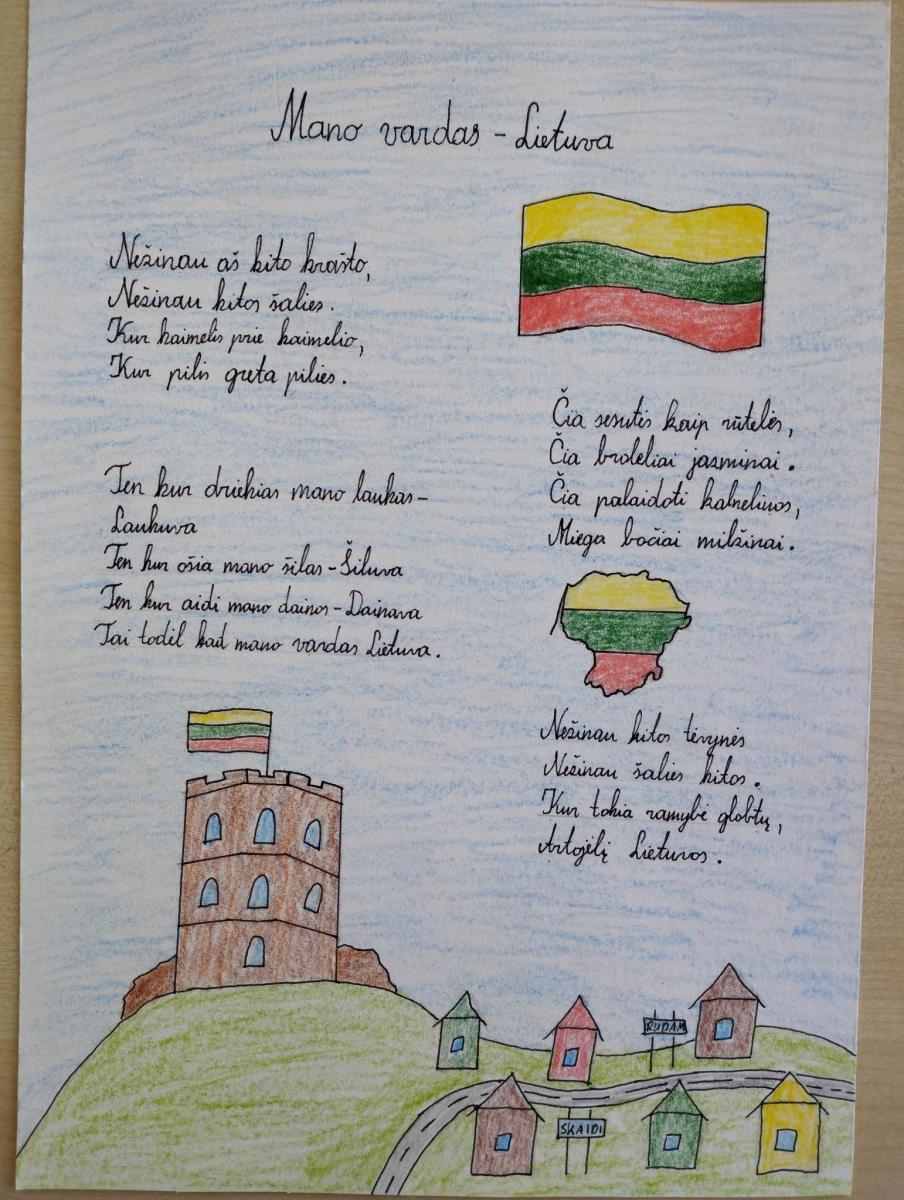 Mano vardas - Lietuva
Nežinau aš kito krašto,
Nežinau kitos šalies.
Kur kaimelis prie kaimelio,
Kur pilis greta pilies.
Ten kur driekias mano laukas-
Laukuva
Ten kur ošia mano šilas-Šiluva
Ten kur aidi mano dainos-Dainava
Tai todėl kad mano vardas Lietuva.
Čia sesutės kaip rūtelės,
Čia broleliai jazminai.
Čia palaidoti kalneliuos,
Miega bočiai milžinai.
Nežinau kitos tėvynės
Nežinau šalies kitos.
Kur tokia ramybė globtų,
Artojėlį Lietuvos.
RUDAM
SKAIDI